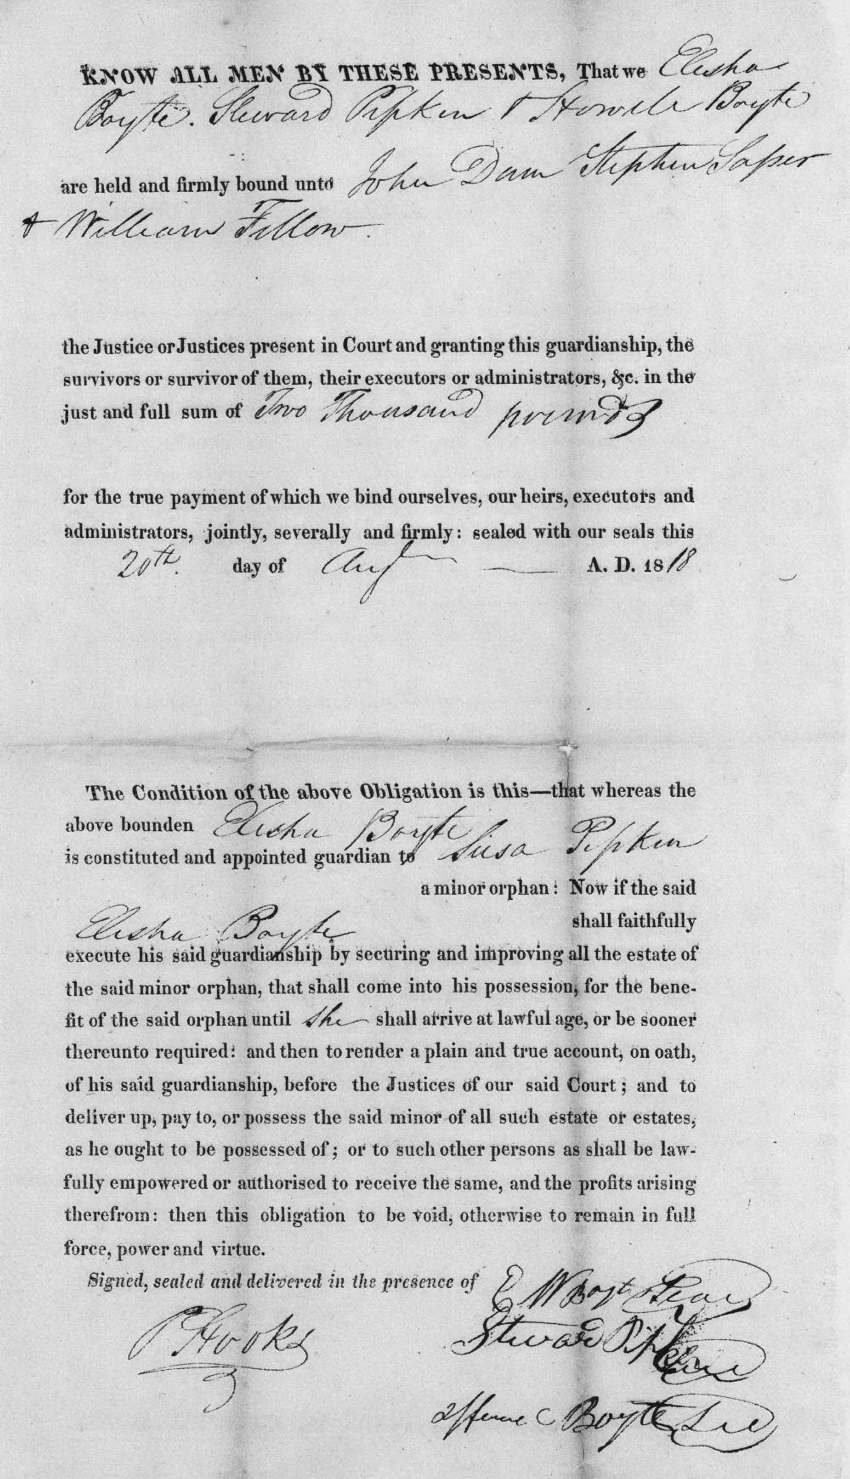 KNOW ALL MEN BY THESE PRESENTS, That we Elisha
Boyte. Steward Pipken & Howell Boyte
are held and firmly bound unto John Dam Stephen Sasser
& William Fellow.
the Justice or Justices present in Court and granting this guardianship, the
survivors or survivor of them, their executors or administrators, &c. in the
just and full sum of Two Thousand pounds
for the true payment of which we bind ourselves, our heirs, executors and
administrators, jointly, severally and firmly: sealed with our seals this
20th. day of Aug — A. D. 1818
The Condition of the above Obligation is this—that whereas the
above bounden Elisha Boyte
is constituted and appointed guardian to Susa Pipken
a minor orphan: Now if the said
Elisha Boyte shall faithfully
execute his said guardianship by securing and improving all the estate of
the said minor orphan, that shall come into his possession, for the bene-
fit of the said orphan until she shall arrive at lawful age, or be sooner
thereunto required: and then to render a plain and true account, on oath,
of his said guardianship, before the Justices of our said Court; and to
deliver up, pay to, or possess the said minor of all such estate or estates,
as he ought to be possessed of; or to such other persons as shall be law-
fully empowered or authorised to receive the same, and the profits arising
therefrom: then this obligation to be void, otherwise to remain in full
force, power and virtue.
Signed, sealed and delivered in the presence of
E W Boyt Seal
P Hooks
Steward Pipken Seal
Boyte